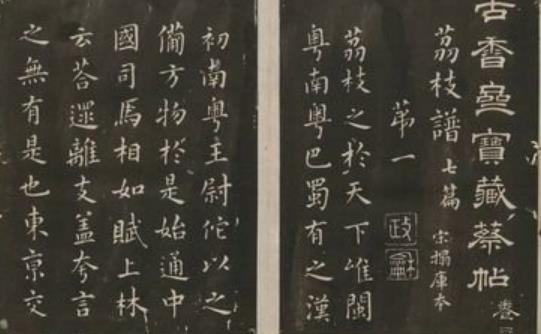 古香齋寶藏蔡帖 卷
茘枝譜 七篇 宋搨庫本
苐一
茘枝之於天下唯閩
粤南粤巴蜀有之漢
初南粤王尉佗以之
俻方物於是始通中
國司馬相如賦上林
云荅遝離支盖夸言
之無有是也東亰交